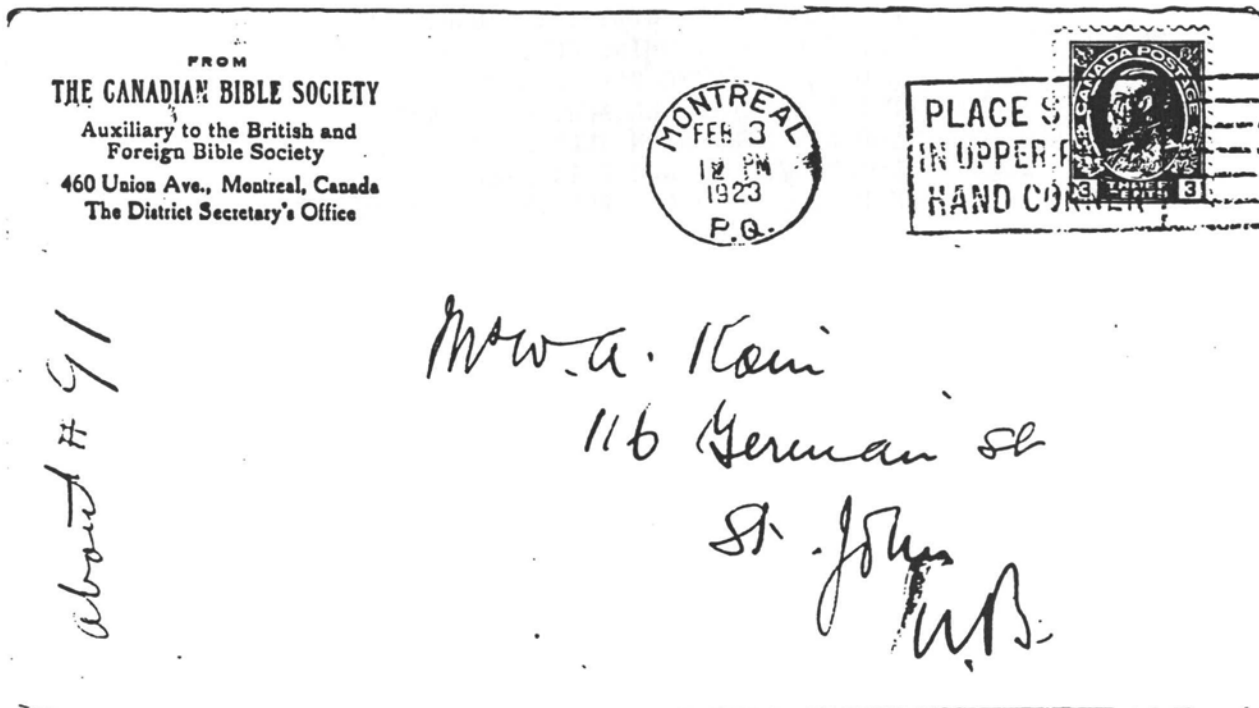 FROM
THE CANADIAN BIBLE SOCIETY
Auxiliary to the British and
Foreign Bible Society
460 Union Ave., Montreal, Canada
The District Secretary's Office
MONTREAL
FEB 3
12 PM
1923
P.Q.
PLACE S
IN UPPER
HAND CORNER
CANADA POSTAGE
3 THREE CENTS 3
W. A. Kain
116 Germain St
St. John
N.B.
about # 91